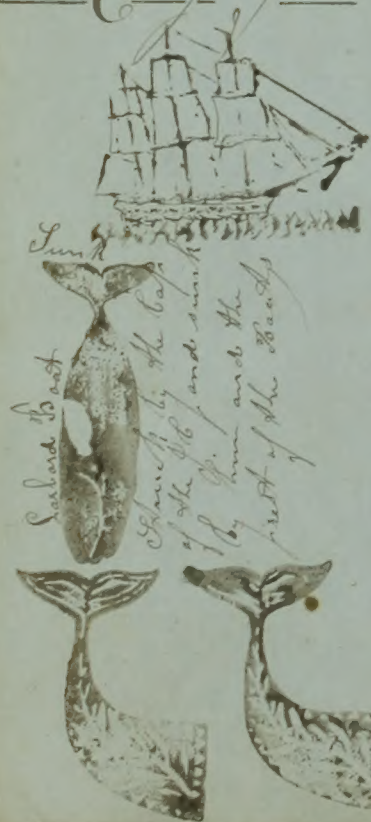 Sunk
Larbard Boat
Struck by the Cap
of the and sunk
by him and the
of the